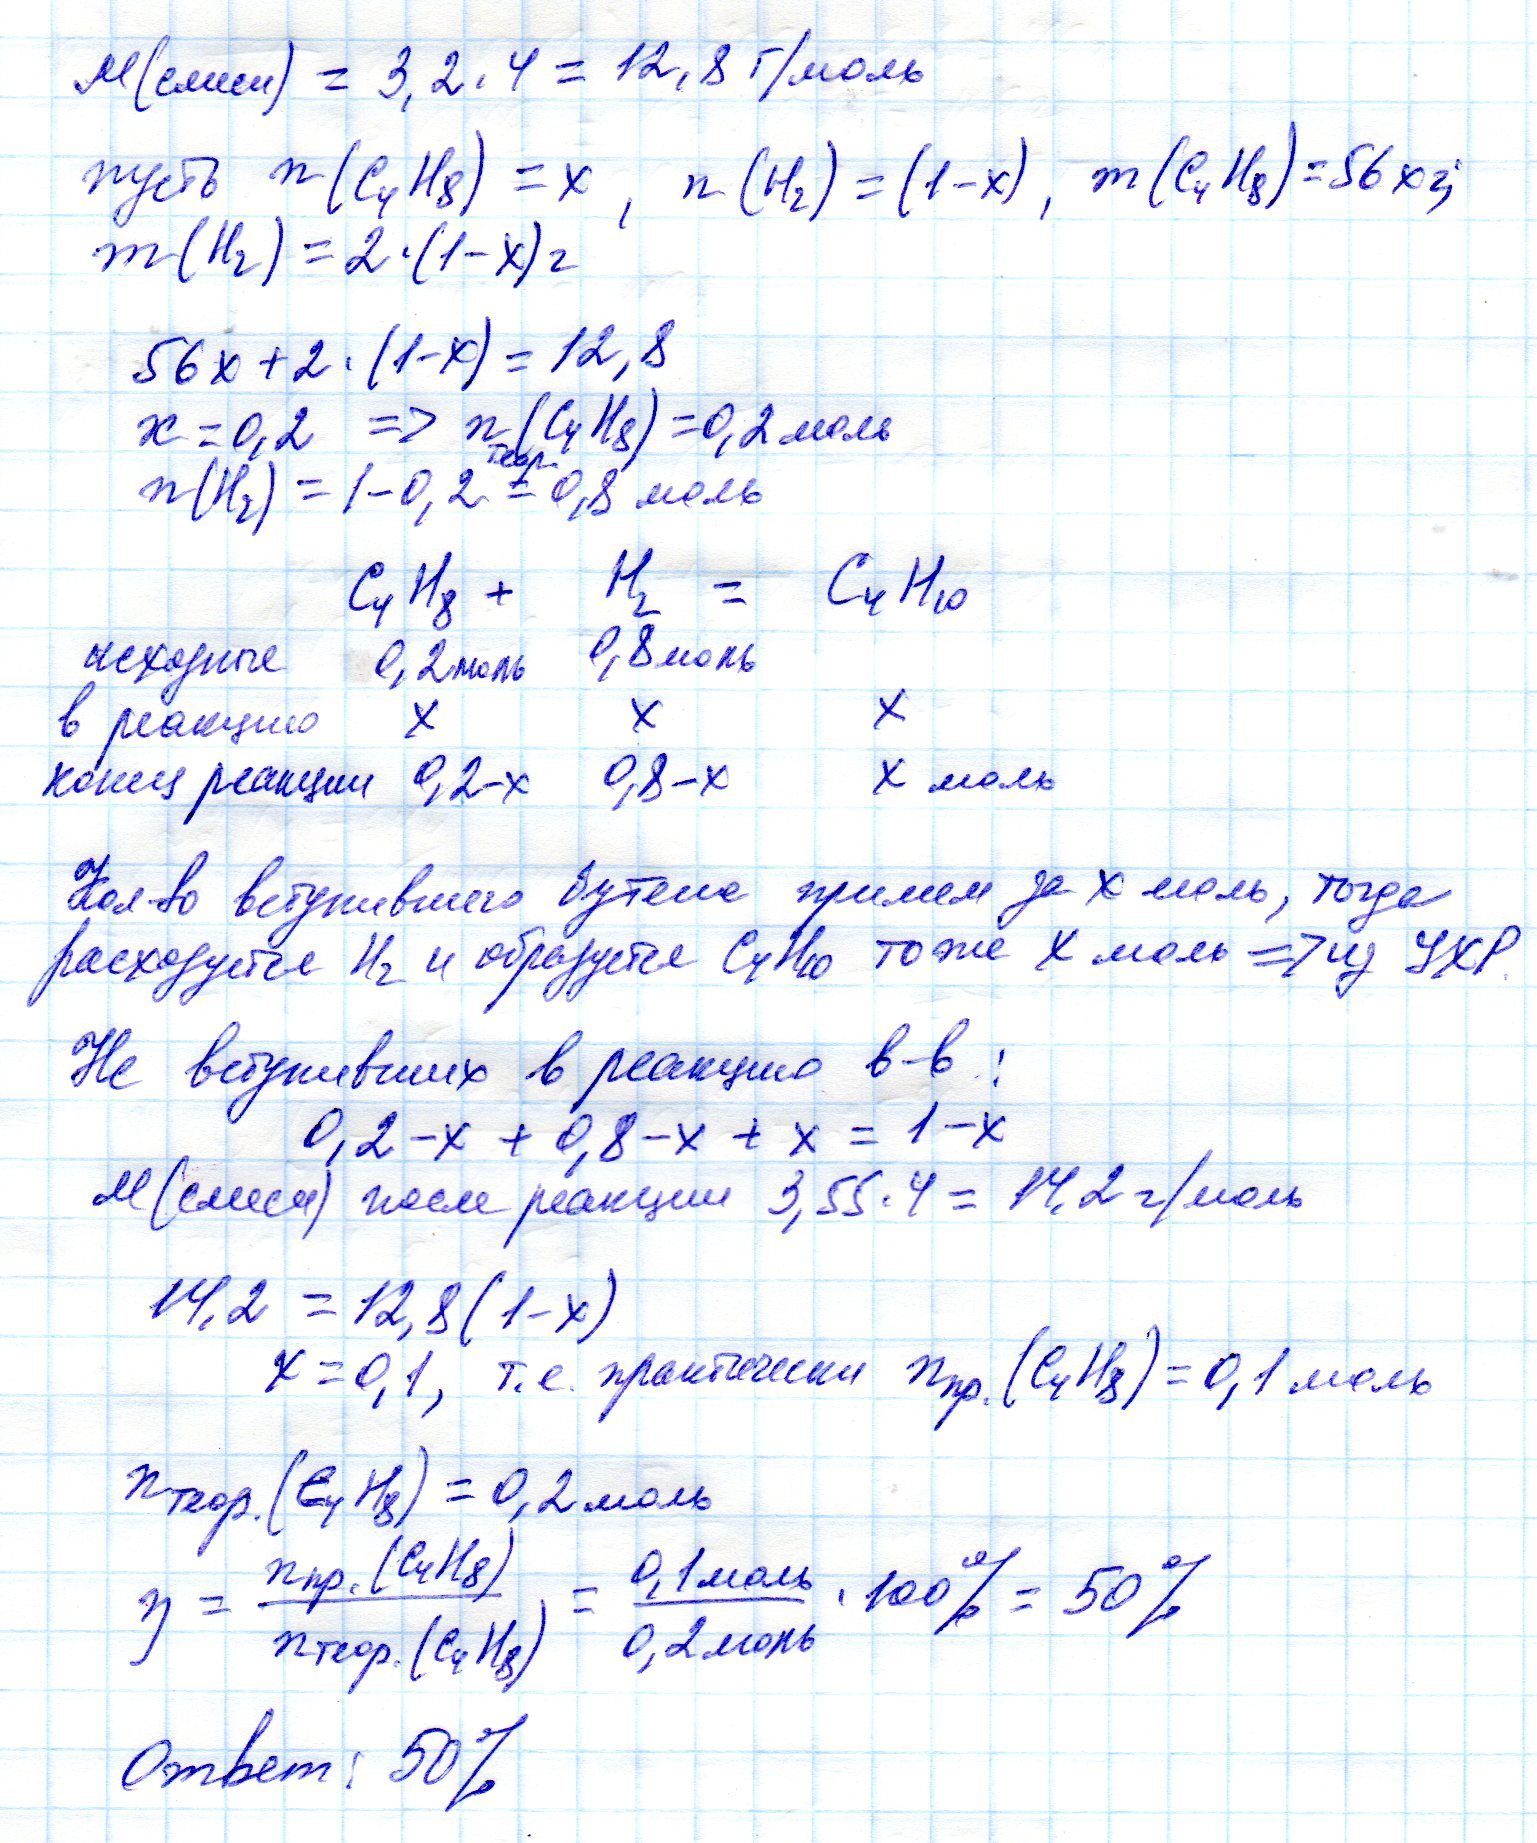 M(смеси) = 3,2·4 = 12,8 г/моль
пусть n(C₄H₈) = x , n(H₂) = (1-x), m(C₄H₈) = 56x г;
m(H₂) = 2·(1-x) г
56x + 2·(1-x) = 12,8
x = 0,2 => n теор. (C₄H₈) = 0,2 моль
n(H₂) = 1-0,2 = 0,8 моль
C₄H₈ + H₂ = C₄H₁₀
исходные 0,2 моль 0,8 моль
в реакцию x x x
конец реакции 0,2-x 0,8-x x моль
Кол-во вступившего бутена примем за x моль, тогда
расходуется H₂ и образуется C₄H₁₀ тоже x моль => из УХР.
Не вступивших в реакцию в-в :
0,2-x + 0,8-x + x = 1-x
M(смеси) после реакции 3,55·4 = 14,2 г/моль
14,2 = 12,8(1-x)
x = 0,1, т.е. практически nпр.(C₄H₈) = 0,1 моль
nтеор.(C₄H₈) = 0,2 моль
η = nпр.(C₄H₈) / nтеор.(C₄H₈) = 0,1 моль / 0,2 моль · 100% = 50%
Ответ: 50%